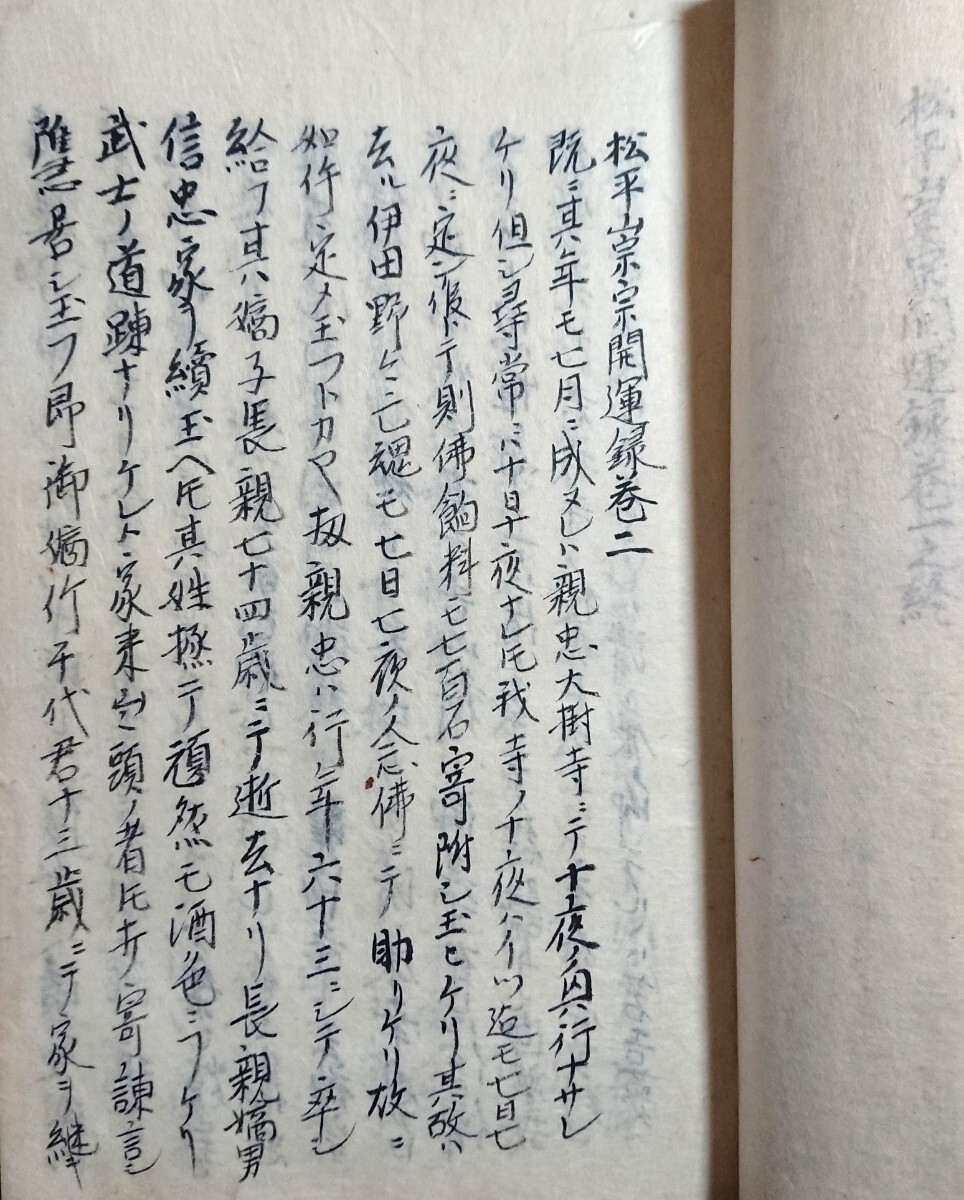 松平崇宗開運録巻二
既ニ其年モ七月ニ成ヌレハ親忠大樹寺ニテ十夜ノ興行ナサレ
ケリ但シ尋常ニ十日十夜ナレ𪜈我寺ノ十夜ハイツ迄モ七日七
夜ニ定シ後ニテ則佛餉料モ七百石寄附シ玉ヒケリ其故ハ
去ル伊田野ケニ亡魂モ七日七夜ノ念佛ニテ助リケリ故ニ
如件定メ玉フトカヤ扨親忠ハ行年六十三ニシテ卒シ
給フ其嫡子長親七十四歳ニテ逝去ナリ長親嫡男
信忠家ヲ續玉ヘ𪜈其姓極テ頑然モ酒色ニフケリ
武士ノ道疎ナリケレト家来ノ頭ノ者𪜈ノ寄諫言シ
隠居シ玉フ即御嫡竹千代君十三歳ニテ家ヲ継